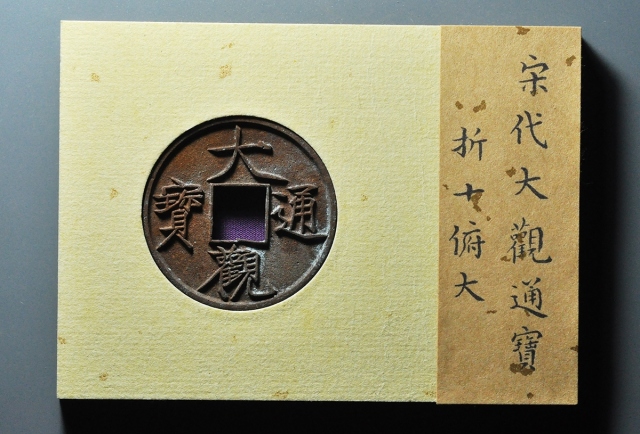 宋代大觀通寶
折十俯大
大觀通寶